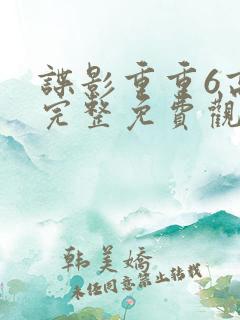 諜影重重6,高
完整免費觀
韩美嬌
未经同意禁止转载